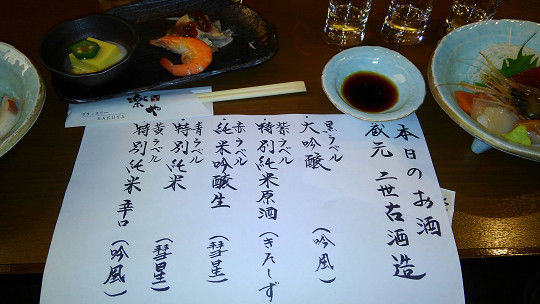 本日のお酒
蔵元 二世古酒造
黒ラベル
・大吟醸 (吟風)
紫ラベル
・特別純米原酒 (きたしずく)
赤ラベル
・純米吟醸生 (彗星)
青ラベル
・特別純米 (彗星)
黄ラベル
・特別純米 辛口 (吟風)
楽や
RAKUYA